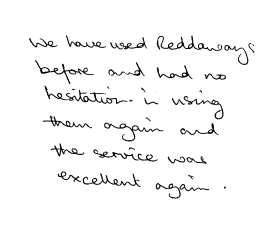 We have used Reddaways
before and had no
hesitation in using
them again and
the service was
excellent again.